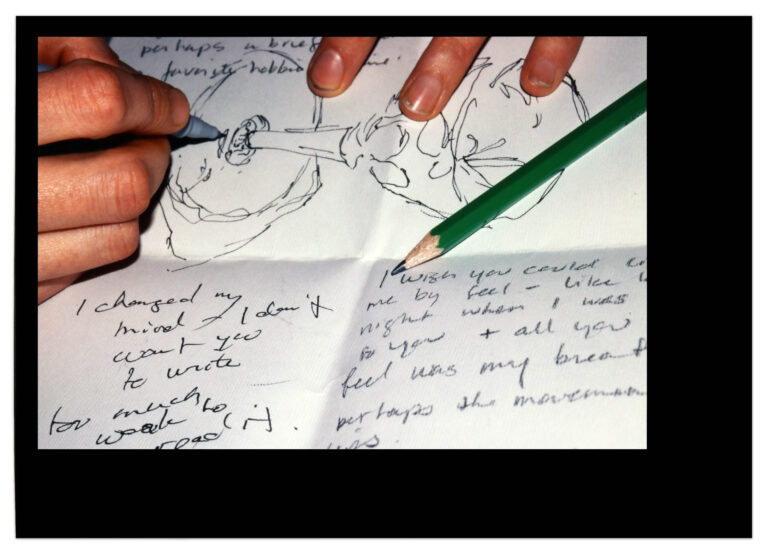 perhaps a brief
favorite hobbie
I changed my
mind – I don't
want you
to write
too much
work to
read it.
I wish you could
me by feel – like
night when I was
to you + all you
feel was my breath
perhaps the movement